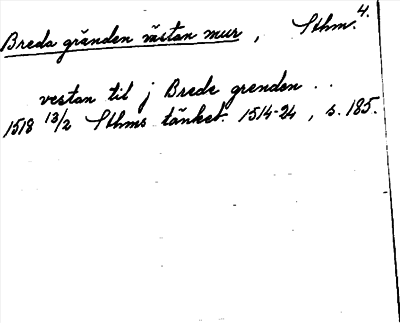 Breda gränden västan mur, Sthm. 4.
vestan til j Brede grenden . .
1518 13/2 Sthms tänkeb. 1514-24, s. 185.